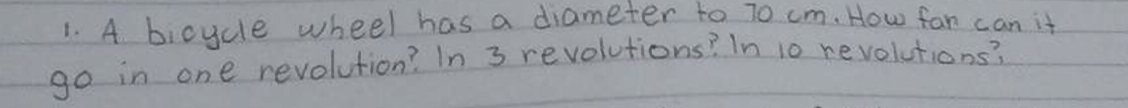 1. A bicycle wheel has a diameter to 70 cm. How far can it
go in one revolution? In 3 revolutions? In 10 revolutions?